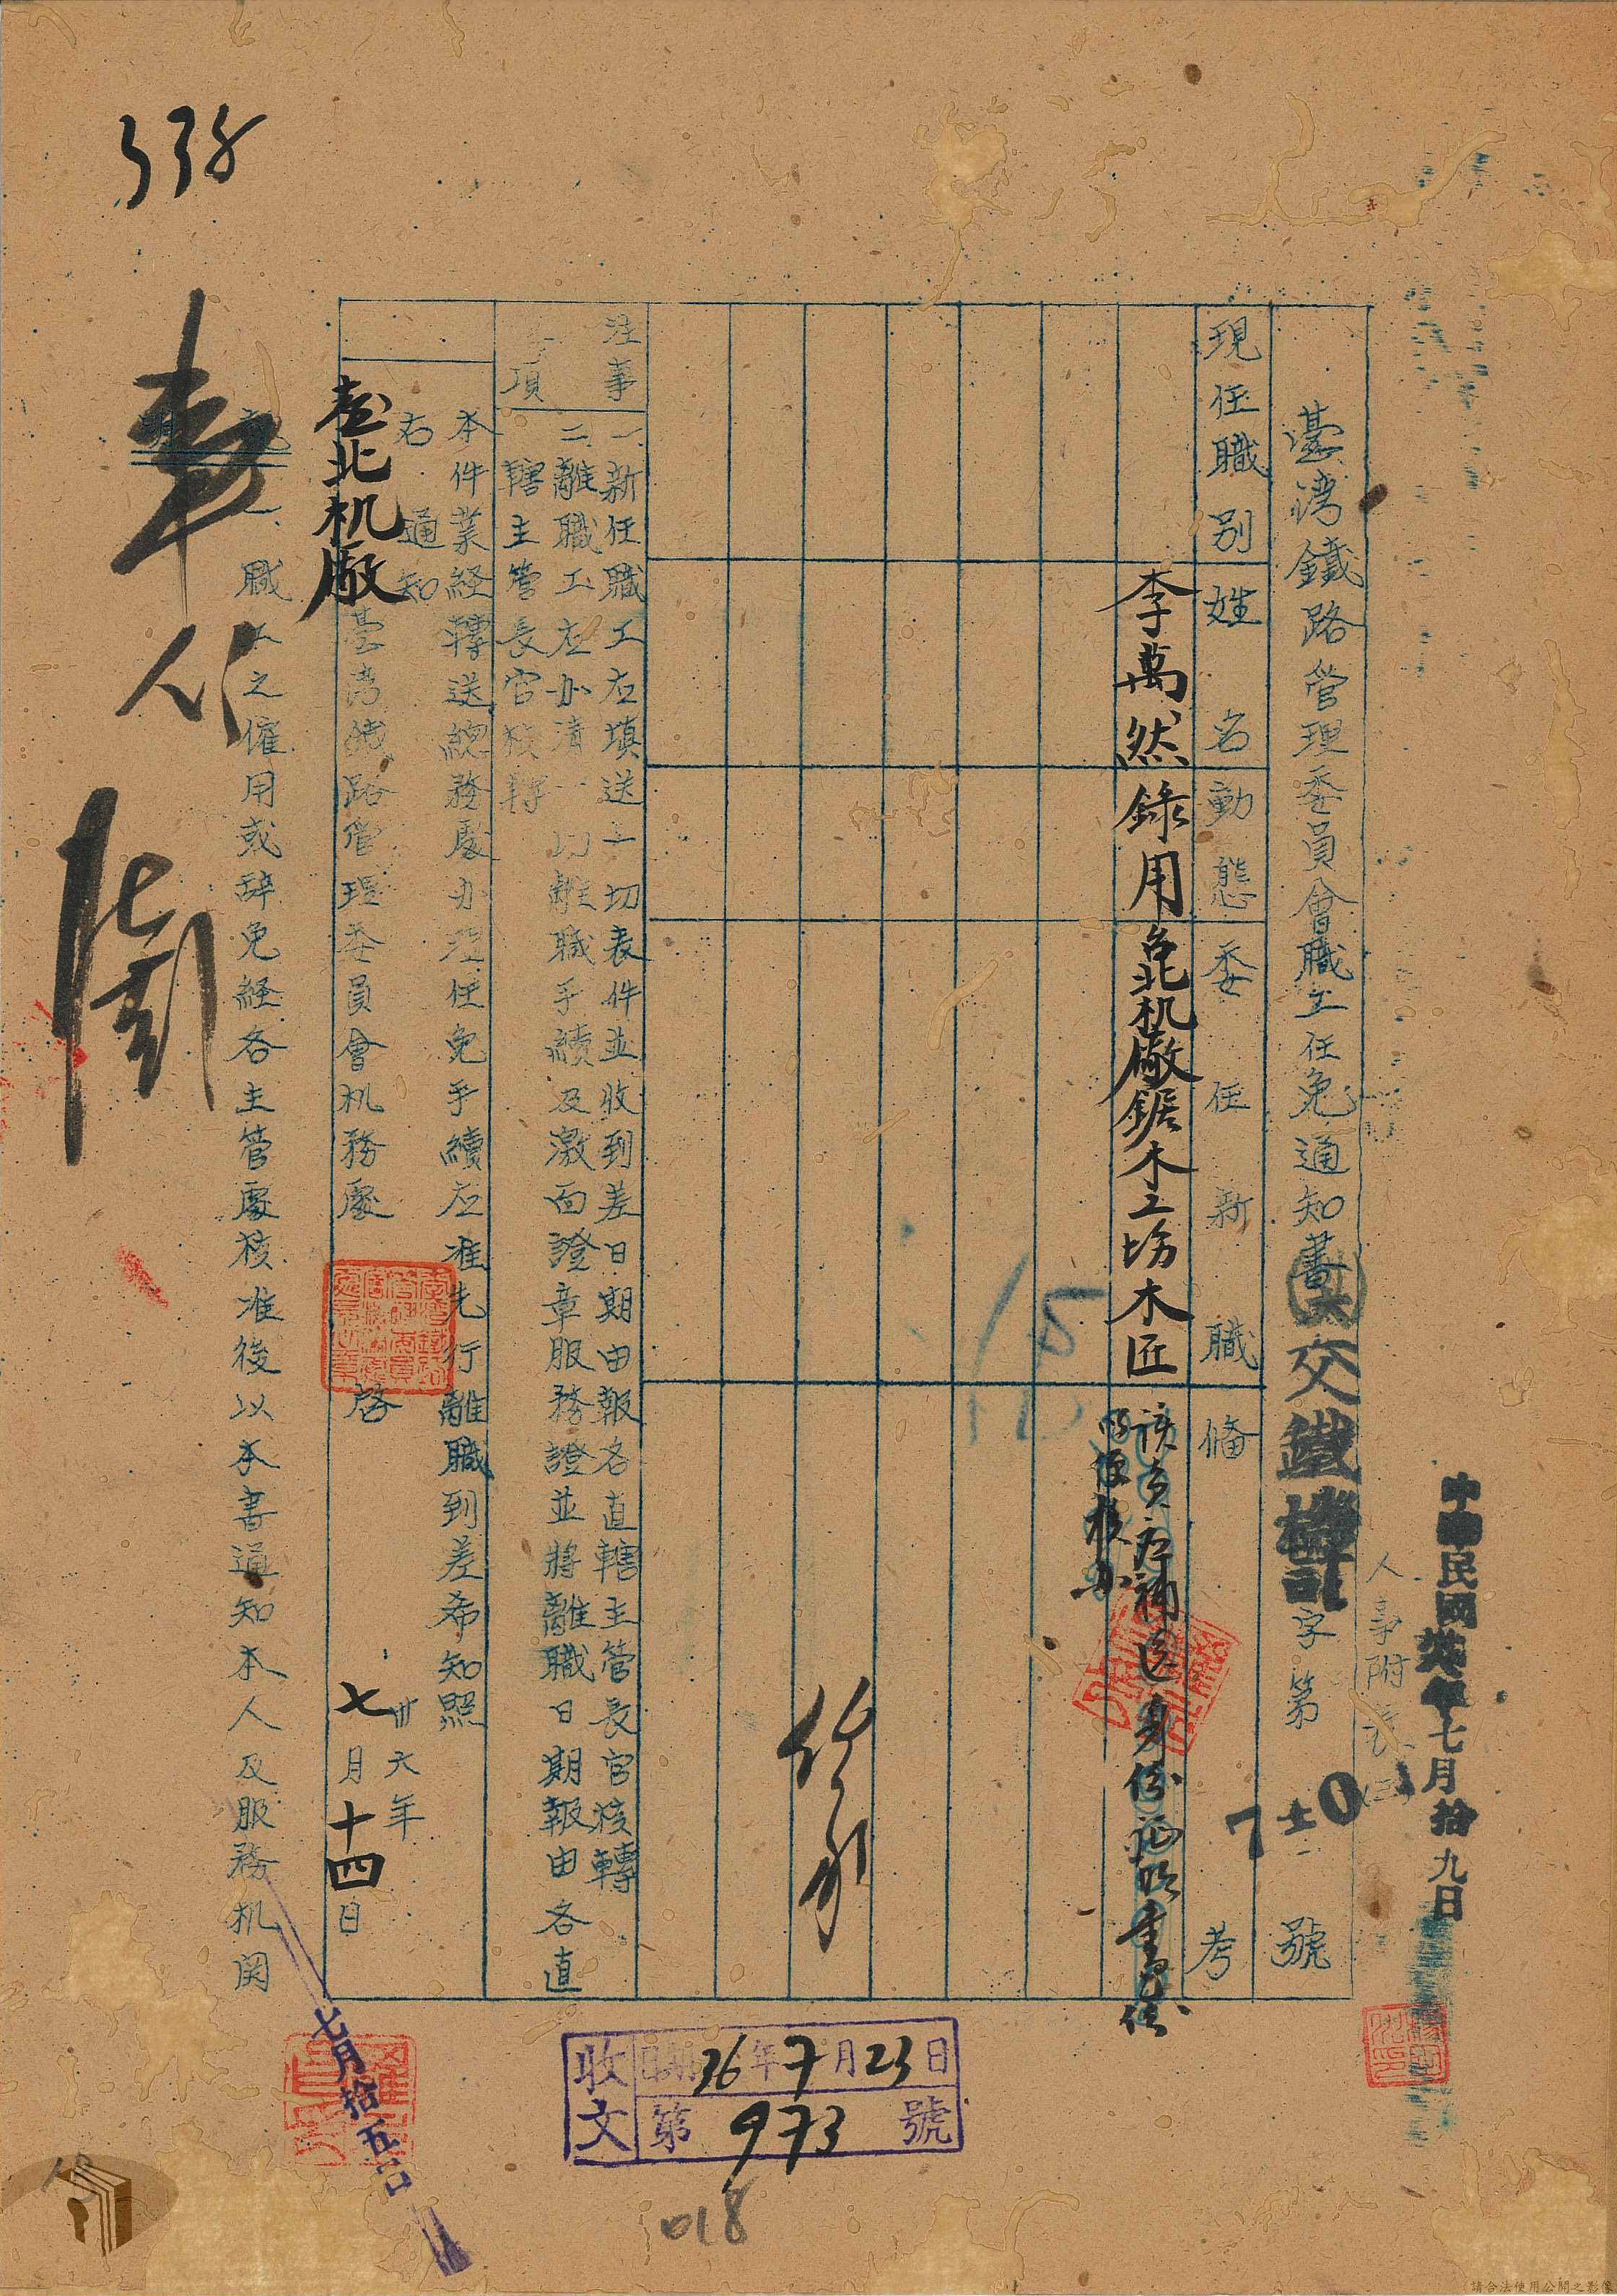 中華民國卅六年七月拾九日
人事附表(三)
臺灣鐵路管理委員會職工任免通知書
交鐵機
字第
號
現任職別
姓名
動態
委任新職
備考
李萬然
錄用
台北机廠鋸木工場木匠
該員應補送身份证明書

注事
一、新任職工应填送一切表件並收到差日期由報各直轄主管長官核轉
二、離職工应办清一切離職手續及激面證章服務證並將離職日期報由各直
項
轄主管長官核轉
本件業経轉送總務處办理任免手續应准先行離職到差希知照
右通知
臺北机廠
臺湾鐵路管理委員會机務處
啓
卅六年
七月十四日
一、職工之僱用或辞免経各主管處核准後以本書通知本人及服務机関
338
15
收文
日期36年7月23日
第973號
018
七月拾五日
請合法使用公開之影像